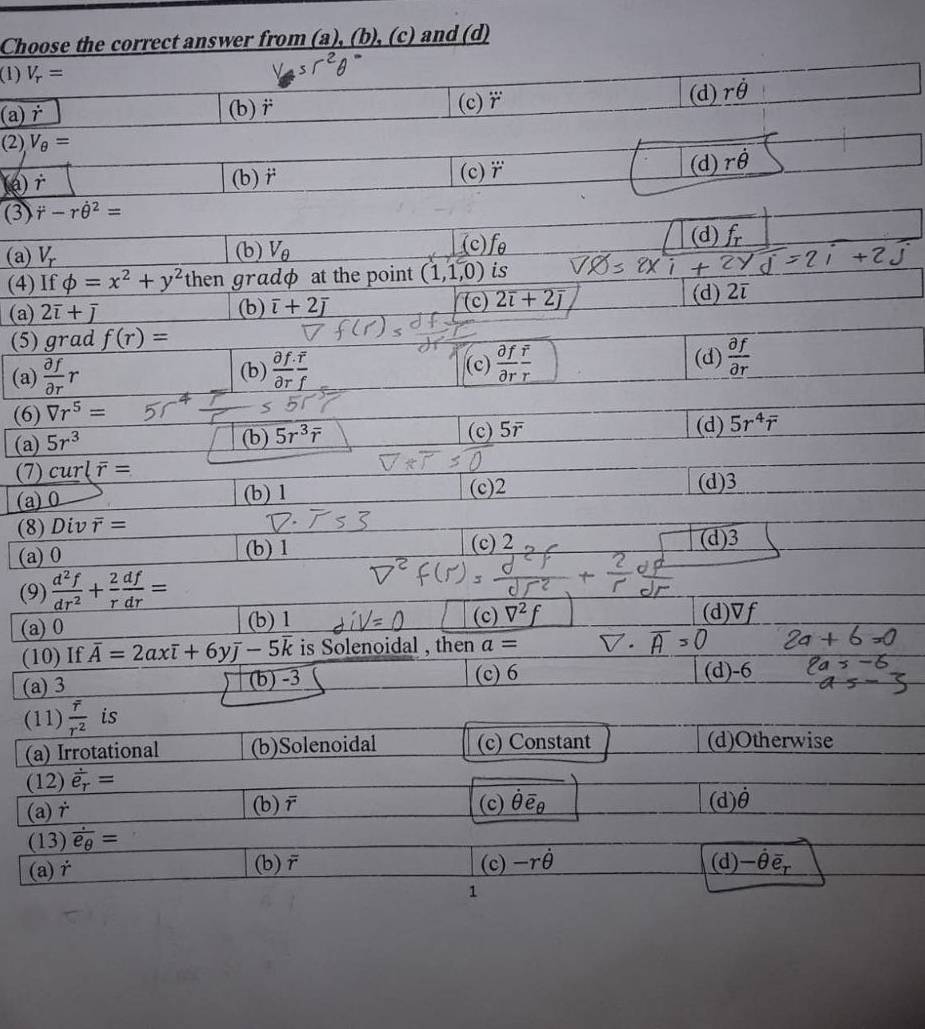 Choose the correct answer from (a), (b), (c) and (d)
(1) Vᵣ =
(a) ṙ (b) r̈ (c) r⃛ (d) rθ̇
(2) V_θ =
(a) ṙ (b) r̈ (c) r⃛ (d) rθ̇
(3) r̈ − rθ̇² =
(a) Vᵣ (b) V_θ (c) f_θ (d) fᵣ
(4) If ϕ = x² + y² then gradϕ at the point (1,1,0) is ∇Ø = 2x i + 2y j = 2i + 2j
(a) 2ī + j̄ (b) ī + 2j̄ (c) 2ī + 2j̄ (d) 2ī
(5) grad f(r) = ∇ f(r) = df/dr r̄/r
(a) ∂f/∂r r (b) ∂f.r̄/∂r f (c) ∂f/∂r r̄/r (d) ∂f/∂r
(6) ∇r⁵ = 5r⁴ r̄/r = 5r³r̄
(a) 5r³ (b) 5r³r̄ (c) 5r̄ (d) 5r⁴r̄
(7) curl r̄ = ∇ × r̄ = 0
(a) 0 (b) 1 (c)2 (d)3
(8) Div r̄ = ∇. r̄ = 3
(a) 0 (b) 1 (c) 2 (d)3
(9) d²f/dr² + 2/r df/dr = ∇² f(r) = d²f/dr² + 2/r df/dr
(a) 0 (b) 1 (c) ∇²f (d)∇f
div = 0
(10) If Ā = 2axī + 6yj̄ − 5k̄ is Solenoidal , then a = ∇. Ā = 0 2a + 6 = 0
(a) 3 (b) -3 (c) 6 (d)-6 2a = -6
a = -3
(11) r̄/r² is
(a) Irrotational (b)Solenoidal (c) Constant (d)Otherwise
(12) ē̇ᵣ =
(a) ṙ (b) r̄ (c) θ̇ē_θ (d)θ̇
(13) ē̇_θ =
(a) ṙ (b) r̄ (c) −rθ̇ (d)−θ̇ēᵣ
1